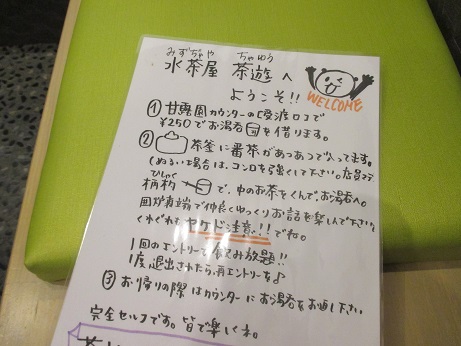 みずぢゃや ちゃゆう
水茶屋 茶遊へ
ようこそ!!
WELCOME
① 甘露園カウンターの受渡口で
¥250でお湯呑を借ります。
② 茶釜に番茶があっあっで入ってます。
(ぬるい場合は、コンロを強くして下さい。店員まで
ひしゃく
柄杓 で、中のお茶をくんで、お湯呑へ。
囲炉裏端で仲良くゆっくりお話を楽しんで下さい
くれぐれも ヤケド注意!!でね。
1回のエントリーで飲み放題!!
1度、退出されたら、再エントリーを♪
③ お帰りの際はカウンターにお湯呑をお返し下さい
完全セルフです。皆で楽しくネ。